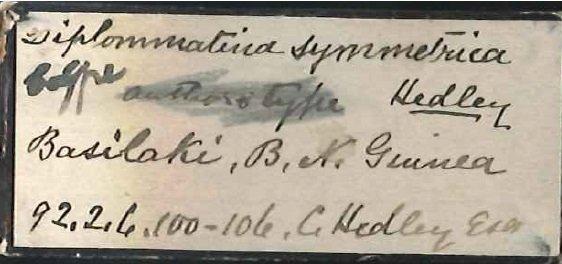 Diplommatina symmetrica
author's type Hedley
Basilaki, B. N. Guinea
92.2.6.100-106. C. Hedley Esq